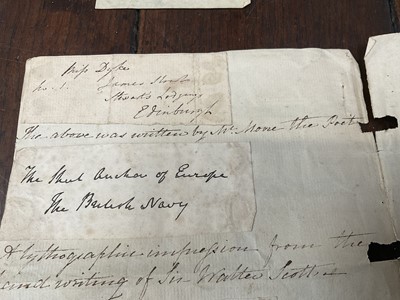 Miss Dyce
James
Edinburgh
The above was written by Mr. More the Poet
The Shut Anchor of Europe
The British Navy
A lythographic impression from the
hand writing of Sir Walter Scott